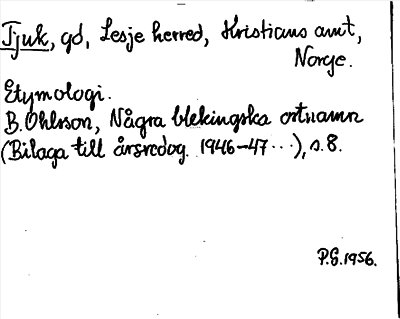 Tjuk, gd, Lesje herred, Kristians amt,
Norge.
Etymologi.
B. Ohlsson, Några blekingska ortnamn
(Bilaga till årsredog. 1946-47...), s. 8.
P.G. 1956.